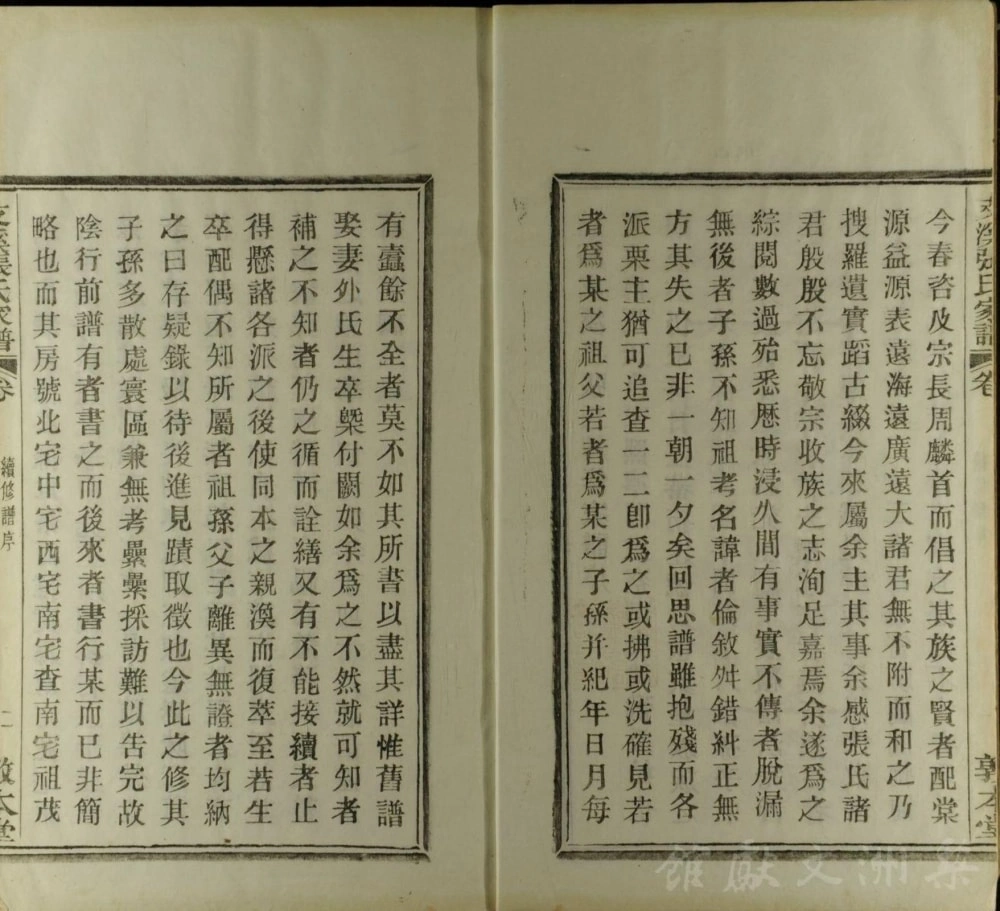 張氏家譜 卷 敦本堂
今春咨及宗長周麟首而倡之其族之賢者配棠
源益源表遠海遠廣遠大諸君無不附而和之乃
搜羅遺實蹈古綴今來屬余主其事余感張氏諸
君殷殷不忘敬宗收族之志洵足嘉焉余遂爲之
綜閱數過殆悉歷時浸久間有事實不傳者脫漏
無後者子孫不知祖考名諱者倫敘舛錯糾正無
方其失之已非一朝一夕矣回思譜雖抱殘而各
派栗主猶可追查一二卽爲之或拂或洗確見若
者爲某之祖父若者爲某之子孫并紀年日月每
有蠹餘不全者莫不如其所書以盡其詳惟舊譜
娶妻外氏生卒槩付闕如余爲之不然就可知者
補之不知者仍之循而詮繕又有不能接續者止
得懸諸各派之後使同本之親渙而復萃至若生
卒配偶不知所屬者祖孫父子離異無證者均納
之曰存疑錄以待後進見蹟取徵也今此之修其
子孫多散處寰區兼無考纍纍採訪難以告完故
陰行前譜有者書之而後來者書行某而已非簡
略也而其房號北宅中宅西宅南宅查南宅祖茂
張氏家譜 卷 續修譜序 二 敦本堂
梁洲文獻館